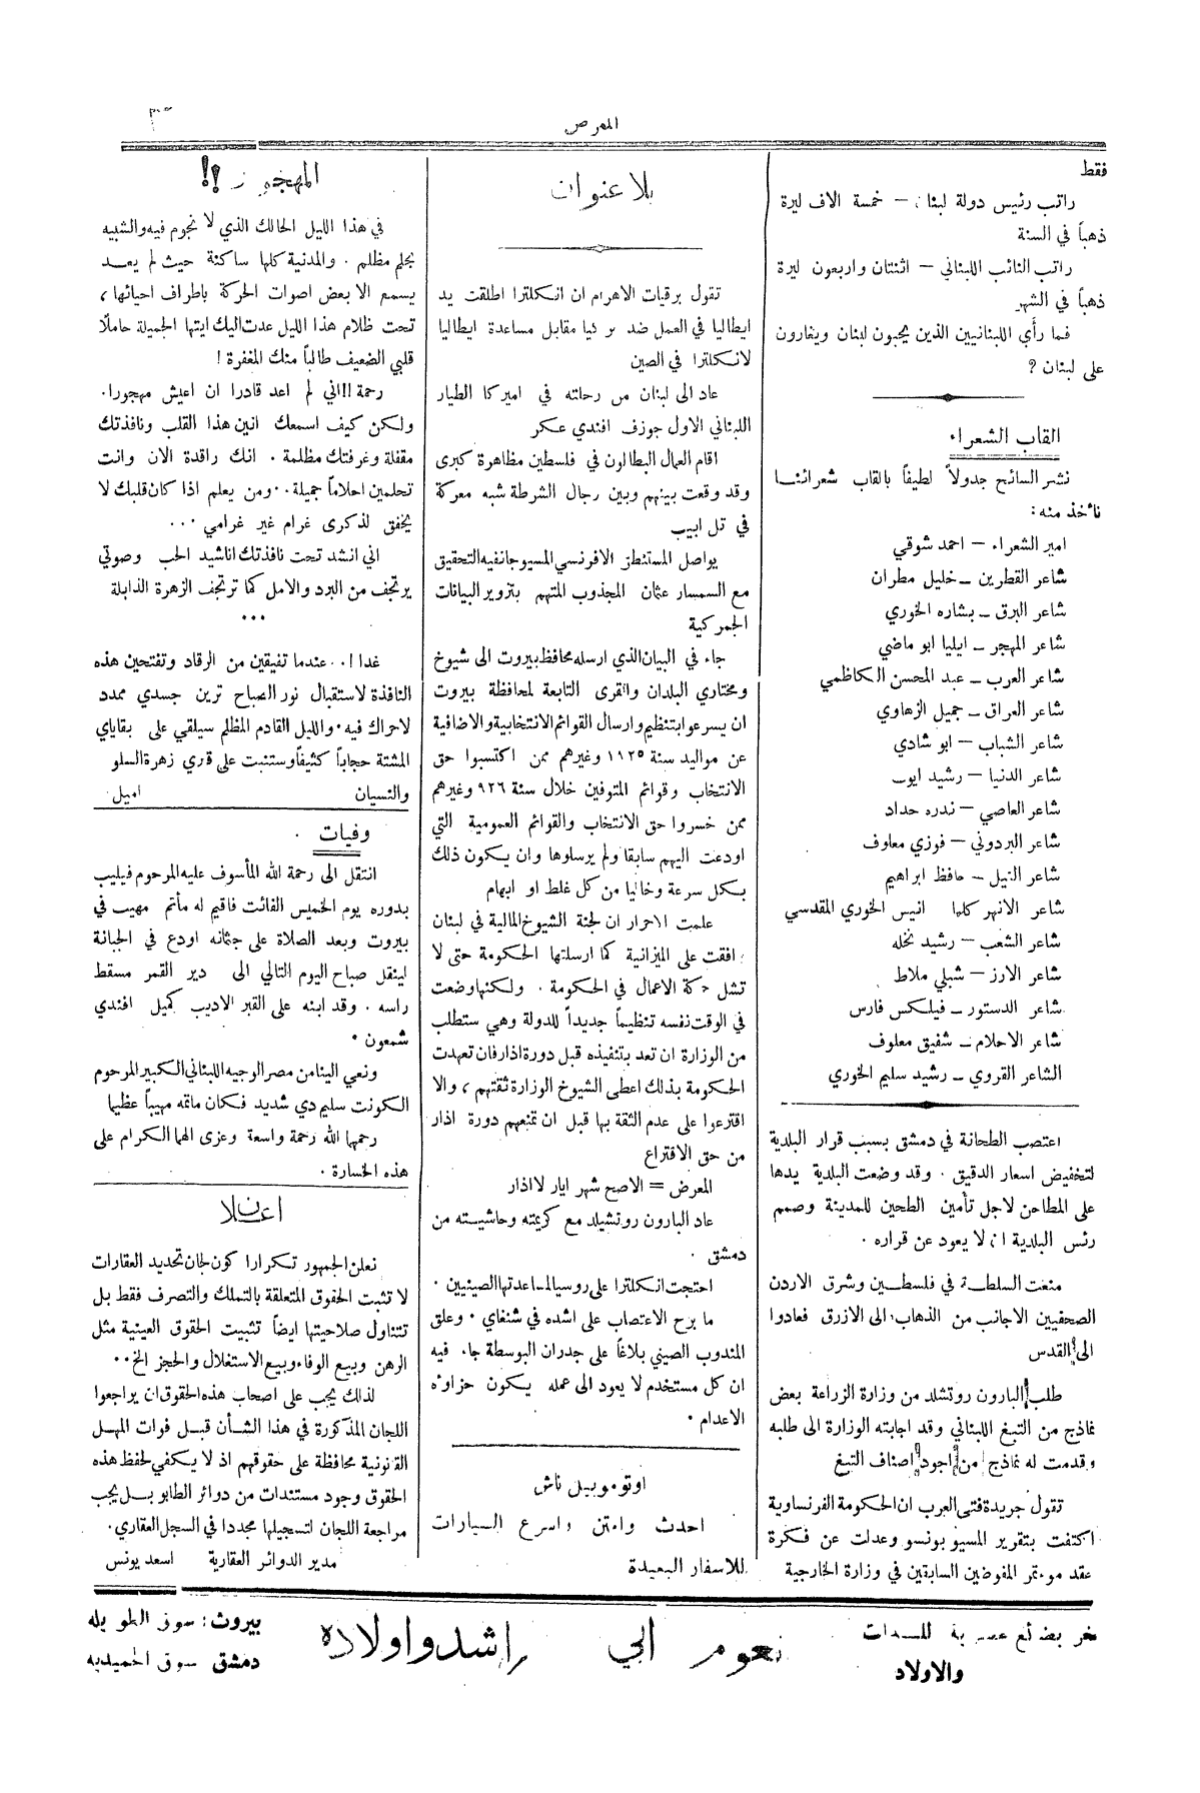 المعرض
٣
فقط
راتب رئيس دولة لبنان — خمسة الاف ليرة
ذهباً في السنة
راتب النائب اللبناني — اثنتان واربعون ليرة
ذهباً في الشهر
فما رأي اللبنانيين الذين يحبون لبنان ويغارون
على لبنان ؟
القاب الشعراء
نشر السائح جدولاً لطيفاً بالقاب شعرائنا
نأخذ منه :
امير الشعراء — احمد شوقي
شاعر القطرين — خليل مطران
شاعر البرق — بشاره الخوري
شاعر المهجر — ايليا ابو ماضي
شاعر العرب — عبد المحسن الكاظمي
شاعر العراق — جميل الزهاوي
شاعر الشباب — ابو شادي
شاعر الدنيا — رشيد ايوب
شاعر العاصي — ندره حداد
شاعر البردوني — فوزي معلوف
شاعر النيل — حافظ ابراهيم
شاعر الانهر كلها انيس الخوري المقدسي
شاعر الشعب — رشيد نخله
شاعر الارز — شبلي ملاط
شاعر الدستور — فيلكس فارس
شاعر الاحلام — شفيق معلوف
الشاعر القروي — رشيد سليم الخوري
اعتصب الطحانة في دمشق بسبب قرار البلدية
لتخفيض اسعار الدقيق . وقد وضعت البلدية يدها
على المطاحن لاجل تأمين الطحين للمدينة وصمم
رئس البلدية ان لا يعود عن قراره .
منعت السلطة في فلسطين وشرق الاردن
الصحفيين الاجانب من الذهاب الى الازرق فعادوا
الى القدس
طلب البارون روتشلد من وزارة الزراعة بعض
نماذج من التبغ اللبناني وقد اجابته الوزارة الى طلبه
وقدمت له نماذج من اجود اصناف التبغ
تقول جريدة فتى العرب ان الحكومة الفرنساوية
اكتفت بتقرير المسيو بونسو وعدلت عن فكرة
عقد موءتمر المفوضين السابقين في وزارة الخارجية
بلا عنوان
تقول برقيات الاهرام ان انكلترا اطلقت يد
ايطاليا في العمل ضد تركيا مقابل مساعدة ايطاليا
لانكلترا في الصين
عاد الى لبنان من رحلته في اميركا الطيار
اللبناني الاول جوزف افندي عكر
اقام العمال البطالون في فلسطين مظاهرة كبرى
وقد وقعت بينهم وبين رجال الشرطة شبه معركة
في تل ابيب
يواصل المستنطق الافرنسي المسيو جانفيه التحقيق
مع السمسار عثمان المجذوب المتهم بتزوير البيانات
الجمركية
جاء في البيان الذي ارسله محافظ بيروت الى شيوخ
ومختاري البلدان والقرى التابعة لمحافظة بيروت
ان يسرعوا بتنظيم وارسال القوائم الانتخابية والاضافية
عن مواليد سنة ١١٢٥ وغيرهم ممن اكتسبوا حق
الانتخاب وقوائم المتوفين خلال سنة ٩٢٦ وغيرهم
ممن خسروا حق الانتخاب والقوائم العمومية التي
اودعت اليهم سابقا ولم يرسلوها وان يكون ذلك
بكل سرعة وخاليا من كل غلط او ابهام
علمت الاحرار ان لجنة الشيوخ المالية في لبنان
وافقت على الميزانية كما ارسلتها الحكومة حتى لا
تشل حركة الاعمال في الحكومة . ولكنها وضعت
في الوقت نفسه تنظيماً جديداً للدولة وهي ستطلب
من الوزارة ان تعد بتنفيذه قبل دورة اذار فان تعهدت
الحكومة بذلك اعطى الشيوخ الوزارة ثقتهم ، والا
اقترعوا على عدم الثقة بها قبل ان تمنعهم دورة اذار
من حق الاقتراع
المعرض = الاصح شهر ايار لا اذار
عاد البارون روتشيلد مع كريمته وحاشيته من
دمشق .
احتجت انكلترا على روسيا لمساعدتها الصينيين .
ما برح الاعتصاب على اشده في شنغاي . وعلق
المندوب الصيني بلاغاً على جدران البوسطة جاء فيه
ان كل مستخدم لا يعود الى عمله يكون جزاؤه
الاعدام .
اوتوموبيل ناش
احدث وامتن واسرع السيارات
للاسفار البعيدة
المهجور !!
في هذا الليل الحالك الذي لا نجوم فيه والشبيه
بحلم مظلم . والمدنية كلها ساكنة حيث لم يعد
يسمع الا بعض اصوات الحركة باطراف احيائها ،
تحت ظلام هذا الليل عدت اليك ايتها الجميلة حاملاً
قلبي الضعيف طالباً منك المغفرة !
رحمة !! اني لم اعد قادرا ان اعيش مهجورا .
ولكن كيف اسمعك انين هذا القلب ونافذتك
مقفلة وغرفتك مظلمة . انك راقدة الان وانت
تحلمين احلاماً جميلة .. ومن يعلم اذا كان قلبك لا
يخفق لذكرى غرام غير غرامي ...
اني انشد تحت نافذتك اناشيد الحب وصوتي
يرتجف من البرد والامل كما ترتجف الزهرة الذابلة
...
غدا ! .. عندما تفيقين من الرقاد وتفتحين هذه
النافذة لاستقبال نور الصباح ترين جسدي ممدد
لا حراك فيه . والليل القادم المظلم سيلقي على بقاياي
المشتة حجاباً كثيفاً وستنبت على قبري زهرة السلو
والنسيان اميل
وفيات .
انتقل الى رحمة الله المأسوف عليه المرحوم فيليب
بدوره يوم الخميس الفائت فاقيم له مأتم مهيب في
بيروت وبعد الصلاة على جثمانه اودع في الجبانة
لينقل صباح اليوم التالي الى دير القمر مسقط
راسه . وقد ابنه على القبر الاديب كميل افندي
شمعون .
ونعي الينا من مصر الوجيه اللبناني الكبير المرحوم
الكونت سليم دي شديد فكان ماتمه مهيباً عظيما
رحمهما الله رحمة واسعة وعزى الهما الكرام على
هذه الخسارة .
اعلان
نعلن الجمهور تكرارا كون لجان تحديد العقارات
لا تثبت الحقوق المتعلقة بالتملك والتصرف فقط بل
تتناول صلاحيتها ايضاً تثبيت الحقوق العينية مثل
الرهن وبيع الوفاء وبيع الاستغلال والحجز الخ ..
لذلك يجب على اصحاب هذه الحقوق ان يراجعوا
اللجان المذكورة في هذا الشأن قبل فوات المهل
القانونية محافظة على حقوقهم اذ لا يكفي لحفظ هذه
الحقوق وجود مستندات من دوائر الطابو بل يجب
مراجعة اللجان لتسجيلها مجددا في السجل العقاري .
مدير الدوائر العقارية اسعد يونس
بضائع عصرية للسيدات
والاولاد
نعوم ابي راشد واولاده
بيروت : سوق الطويله
دمشق سوق الحميديه